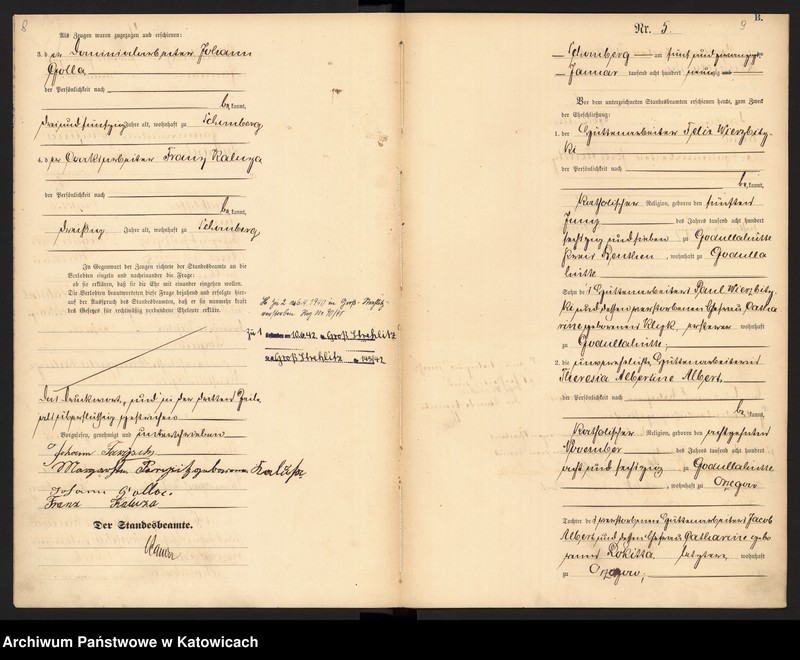 8
Als Zeugen waren zugezogen und erschienen:
3. der Dominialarbeiter Johann
Golla
der Persönlichkeit nach
bekannt,
dreiundfünfzig Jahre alt, wohnhaft zu Schomberg,
4. der Franz Kaluza
der Persönlichkeit nach
bekannt,
dreißig Jahre alt, wohnhaft zu Schomberg,
In Gegenwart der Zeugen richtete der Standesbeamte an die
Verlobten einzeln und nacheinander die Frage:
ob sie erklären, daß sie die Ehe mit einander eingehen wollen.
Die Verlobten beantworteten diese Frage bejahend und erfolgte hier-
auf der Ausspruch des Standesbeamten, daß er sie nunmehr kraft
des Gesetzes für rechtmäßig verbundene Eheleute erkläre.
zu 2 1940 in Groß-
verstorben
zu 1 10.6.42 Groß Strehlitz
Groß Strehlitz 145/42
Das Druckwort „und“ in der dritten Zeile
als überflüssig gestrichen
Vorgelesen, genehmigt und unterschrieben
Johann
geborene
Johann Golla.
Franz Kaluza
Der Standesbeamte.
B.
9
Nr. 5.
Schomberg am fünf und zwanzigsten
Januar tausend acht hundert neunzig
Vor dem unterzeichneten Standesbeamten erschienen heute, zum Zweck
der Eheschließung:
1. der Hüttenarbeiter Felix Wierzbitz-
ki
der Persönlichkeit nach
bekannt,
katholischer Religion, geboren den fünften
Juny des Jahres tausend acht hundert
sechszig und sieben zu Godullahütte
Kreis Beuthen, wohnhaft zu Godulla
hütte
Sohn des Hüttenarbeiters Paul Wierzbitz-
ki und dessen verstorbenen Ehefrau Catha
rine geborenen Klyk, ersterer wohnhaft
zu Godullahütte;
2. die unverehelichte Hüttenarbeiterin
Theresia Albertine Albert,
der Persönlichkeit nach
bekannt,
katholischer Religion, geboren den achtzehnten
November des Jahres tausend acht hundert
acht und sechszig zu Godullahütte
, wohnhaft zu Orzegow
Tochter des verstorbenen Hüttenarbeiters Jacob
Albert und dessen Ehefrau Catharine gebo
renen Rokitta letztere wohnhaft
zu Orzegow;
Archiwum Państwowe w Katowicach